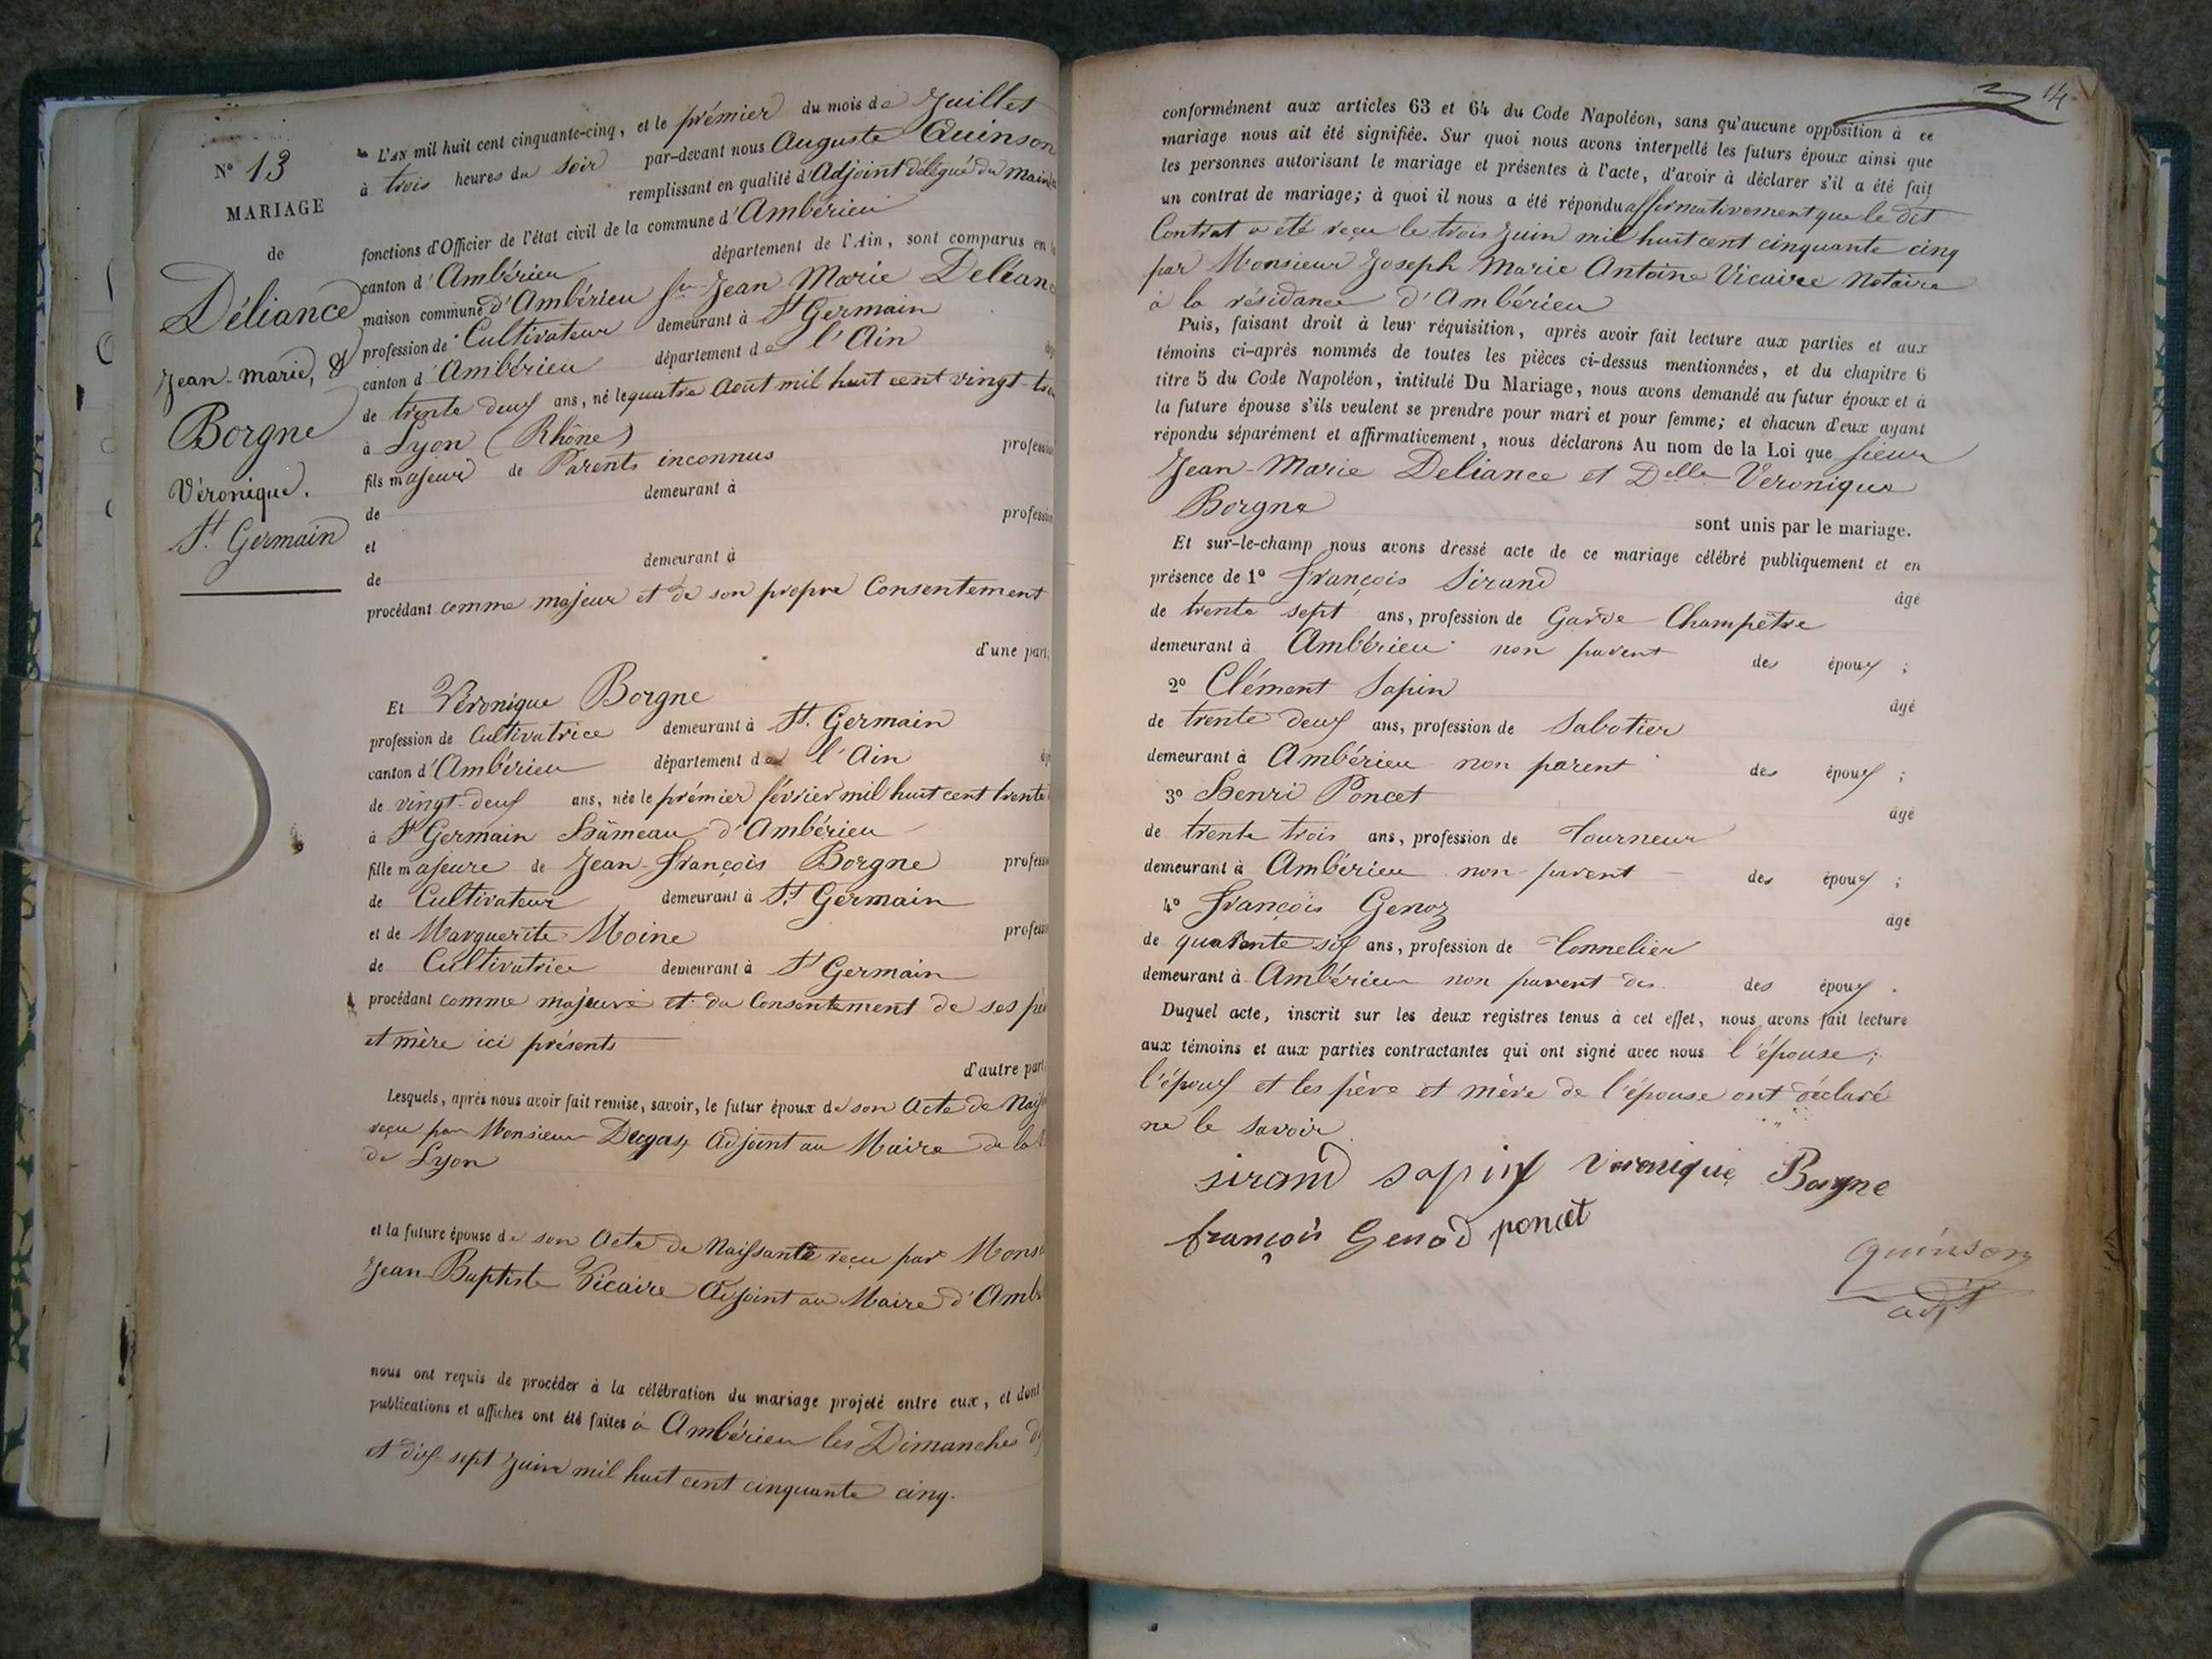 N° 13
MARIAGE
de
Déliance
Jean-Marie, &
Borgne
Véronique.
St. Germain
L'AN mil huit cent cinquante-cinq, et le prémier du mois de Juillet
à trois heures du soir par-devant nous Auguste Quinson
remplissant en qualité d'Adjoint délégué du Maire les
fonctions d'Officier de l'état civil de la commune d'Ambérieu
canton d'Ambérieu département de l'Ain, sont comparus en la
maison commune d'Ambérieu Sr Jean Marie Deléanc
profession de Cultivateur demeurant à St Germain
canton d'Ambérieu département de l'Ain
de trente deux ans, né le quatre Aout mil huit cent vingt-trois
à Lyon (Rhône)
fils majeur de Parents inconnus profession
de demeurant à
et profession
de demeurant à
procédant comme majeur et de son propre Consentement
d'une part,
Et Véronique Borgne
profession de Cultivatrice demeurant à St. Germain
canton d'Ambérieu département de l'Ain
de vingt-deux ans, née le prémier février mil huit cent trente
à St Germain Hâmeau d'Ambérieu
fille majeure de Jean-François Borgne profess
de Cultivateur demeurant à St. Germain
et de Marguerite Moine profess
de Cultivatrice demeurant à St Germain
procédant comme majeure et du Consentement de ses père
et mère ici présents
d'autre part.
Lesquels, après nous avoir fait remise, savoir, le futur époux de son Acte de Naiss
reçu par Monsieur Adjoint au Maire de la
de Lyon
et la future épouse de son Acte de Naissance reçu par Mons
Jean-Baptiste Vicaire Adjoint au Maire d'Ambé
nous ont requis de procéder à la célébration du mariage projeté entre eux, et dont
publications et affiches ont été faites à Ambérieu les Dimanches
et dix-sept Juin mil huit cent cinquante cinq.
14
conformément aux articles 63 et 64 du Code Napoléon, sans qu'aucune opposition à ce
mariage nous ait été signifiée. Sur quoi nous avons interpellé les futurs époux ainsi que
les personnes autorisant le mariage et présentes à l'acte, d'avoir à déclarer s'il a été fait
un contrat de mariage; à quoi il nous a été répondu affirmativement que le dit
Contrat a été reçu le trois Juin mil huit cent cinquante cinq
par Monsieur Joseph Marie Antoine Vicaire Notaire
à la résidance d'Ambérieu
Puis, faisant droit à leur réquisition, après avoir fait lecture aux parties et aux
témoins ci-après nommés de toutes les pièces ci-dessus mentionnées, et du chapitre 6
titre 5 du Code Napoléon, intitulé Du Mariage, nous avons demandé au futur époux et à
la future épouse s'ils veulent se prendre pour mari et pour femme; et chacun d'eux ayant
répondu séparément et affirmativement, nous déclarons Au nom de la Loi que sieur
Jean-Marie Deliance et Delle Véronique
Borgne
sont unis par le mariage.
Et sur-le-champ nous avons dressé acte de ce mariage célébré publiquement et en
présence de 1° François Sirand âgé
de trente sept ans, profession de Garde Champêtre
demeurant à Ambérieu non parent des époux ;
2° Clément Sapin âgé
de trente deux ans, profession de Sabotier
demeurant à Ambérieu non parent des époux ;
3° Henri Poncet âgé
de trente trois ans, profession de Tourneur
demeurant à Ambérieu non parent des époux ;
4° François Genoz âgé
de quarente six ans, profession de Tonnelier
demeurant à Ambérieu non parent des des époux .
Duquel acte, inscrit sur les deux registres tenus à cet effet, nous avons fait lecture
aux témoins et aux parties contractantes qui ont signé avec nous l'épouse;
l'époux et les père et mère de l'épouse ont déclaré
ne le savoir
sirand sapin veronique Borgne
françois Genod poncet
quinson
adjt